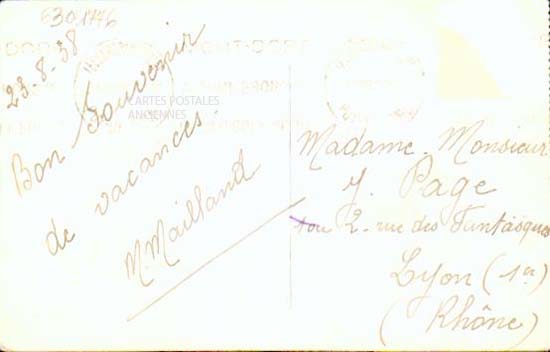 6301776
23-8-38
Bon Souvenir
de vacances.
M. Mailland
CARTES POSTALES
ANCIENNES
MONT-DORE
Madame. Monsieur
J. Page
1 ou 2 - rue des Fantasques
Lyon (1er)
(Rhône)